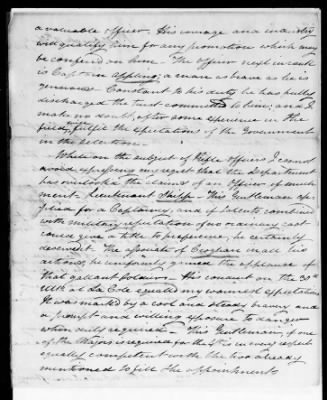 a valuable officer. His courage and
will qualify him for any promotion which may
be confered on him. The officer next in rank
is Captain Appling; a man as brave as he is
generous. Constant to his duty he has fully
discharged the trust committed to him; and I
make no doubt, after some experience in the
field, fulfil the expectations of the Government
in the selection.
While on the subject of Rifle officers I cannot
avoid expressing my regret that the department
has overlooked the claims of an Officer of much
merit. Lieutenant This Gentleman
for a Captaincy, and if talents combined
with military reputation of no ordinary cast
could give a title to preferment, he certainly
deserved it. The associate of in all his
actions, he uniformly gained the applause of
that gallant soldier. His conduct on the 30th
Ulto at La Cole equaled my warmest expectations
It was marked by a cool and steady bravery and
a prompt and willing exposure to danger
when duty required. This Gentleman, if one
of the Majors is required for the 4th is in every respect
equally competent with the two already
mentioned to fill the appointment